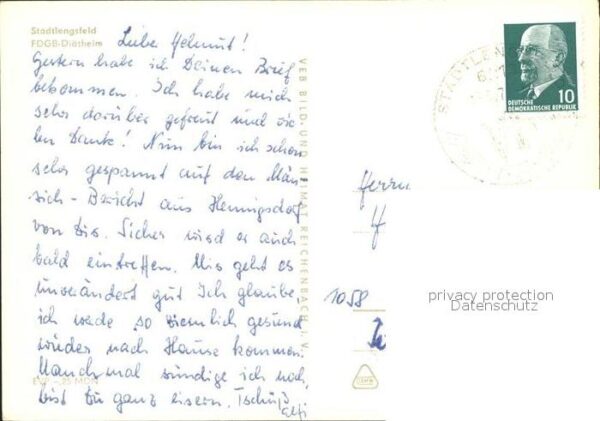 Stadtlengsfeld
FDGB-Diätheim
Lieber Helmut!
Gestern habe ich Deinen Brief
bekommen. Ich habe mich
sehr darüber gefreut und vie-
len Dank! Nun bin ich schon
sehr gespannt auf den
Bericht aus Hennigsdorf
von Dir. Sicher wird er auch
bald eintreffen. Mir geht es
unverändert gut. Ich glaube,
ich werde so ziemlich gesund
wieder nach Hause kommen.
Manchmal sündige ich noch,
bist Du ganz eisern. Tschüß
Elfi
EVP -,25 MDN
VEB BILD UND HEIMAT REICHENBACH I. V.
DEUTSCHE
DEMOKRATISCHE REPUBLIK
10
STADTLENGSFELD
Herrn
H
1058
privacy protection
Datenschutz